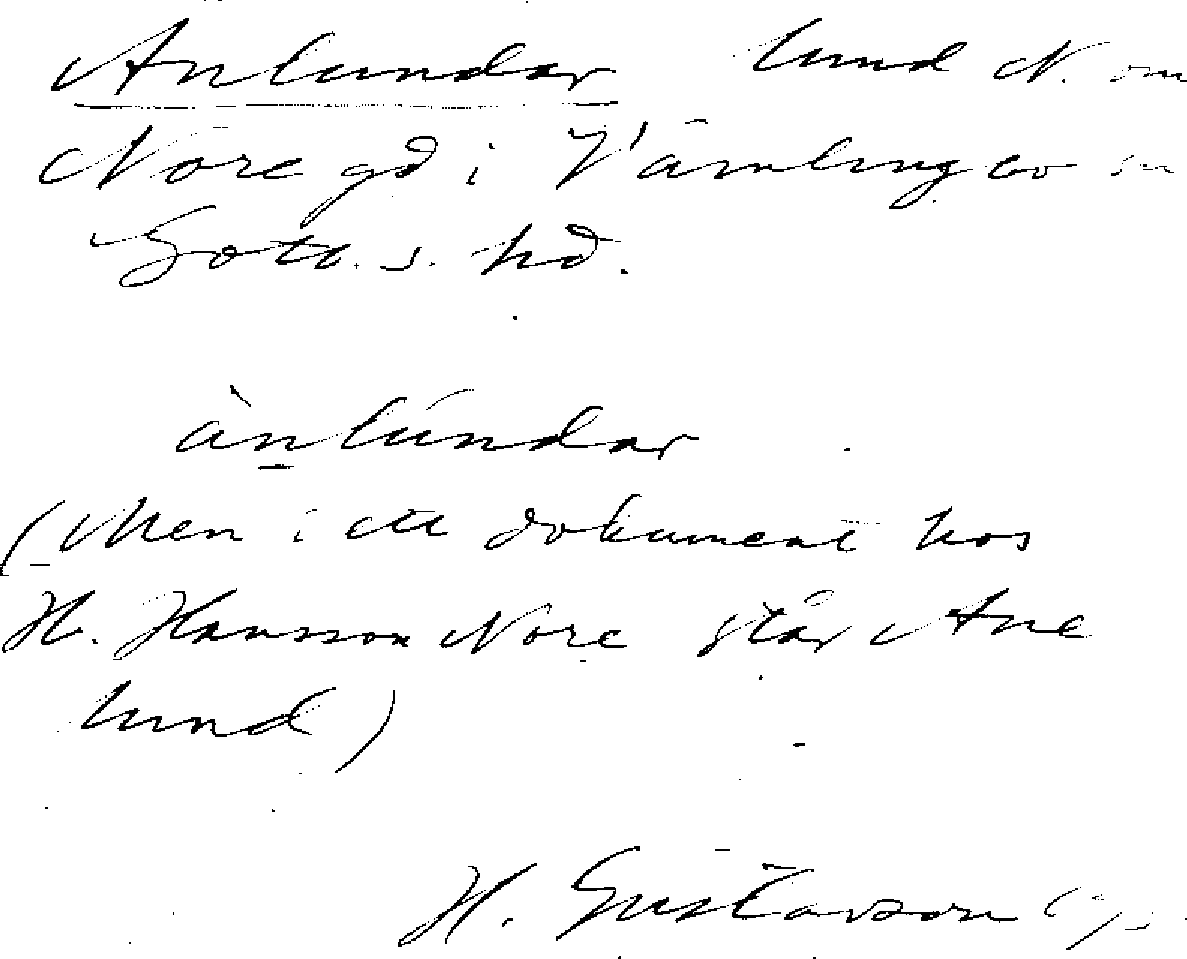 Anlundar lund N. om
Nore gd i Vämlingbo sn
Gotl. s. hd.
ànlúndar
(Men i ett dokument hos
H. Hansson Nore står Ane
lund)
H. Gustavson